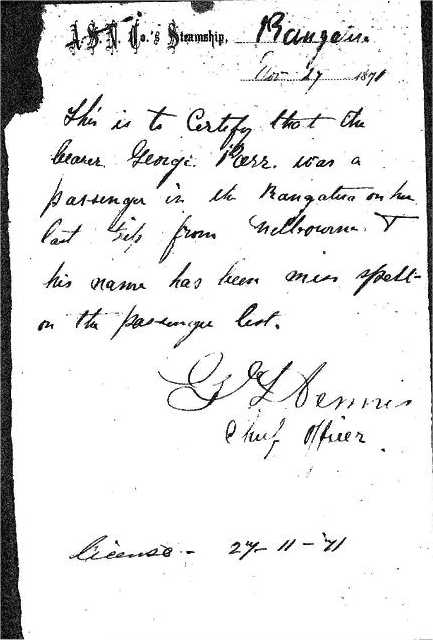 A.S.N. Co.'s Steamship,
Nov 27 1871
This is to Certify that the
bearer George Kerr was a
passenger in the Rangatira on her
last trip from Melbourne &
his name has been miss spelt
on the passenger list.
Dennis
Chief Officer.
License - 27-11-71